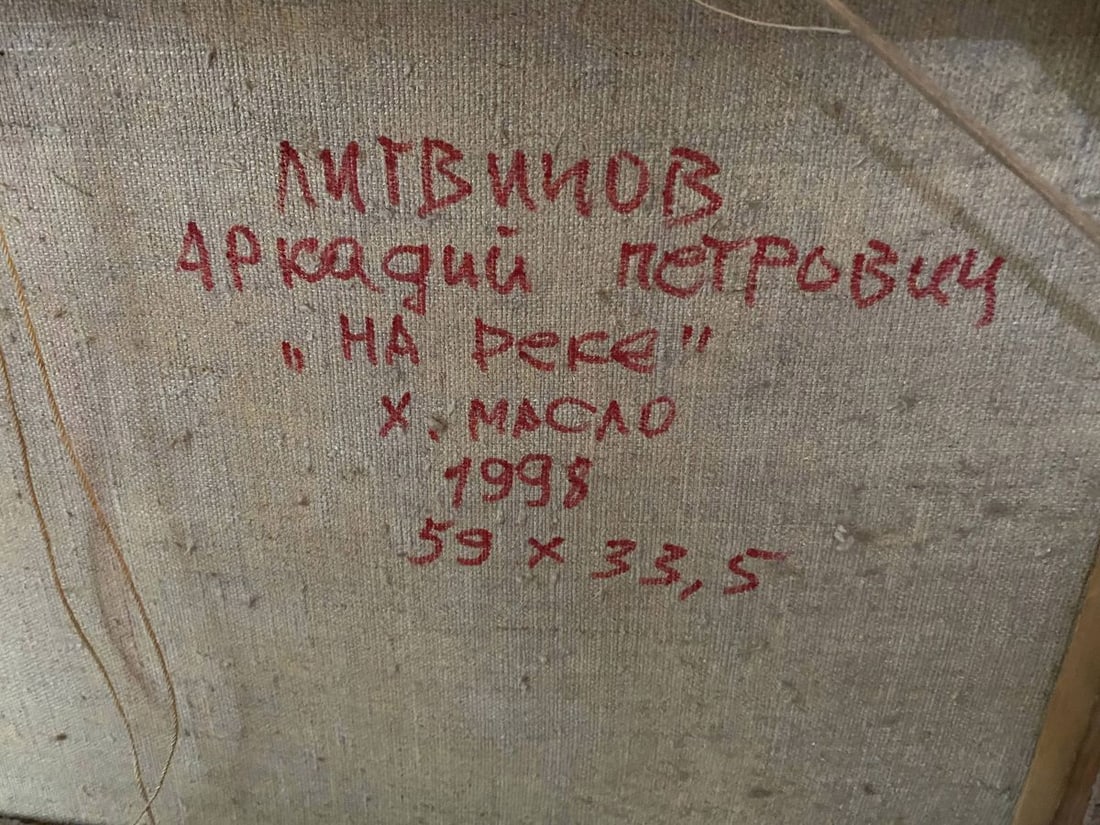 ЛИТВИНОВ
Аркадий Петрович
„На реке"
х. масло
1998
59 x 33,5